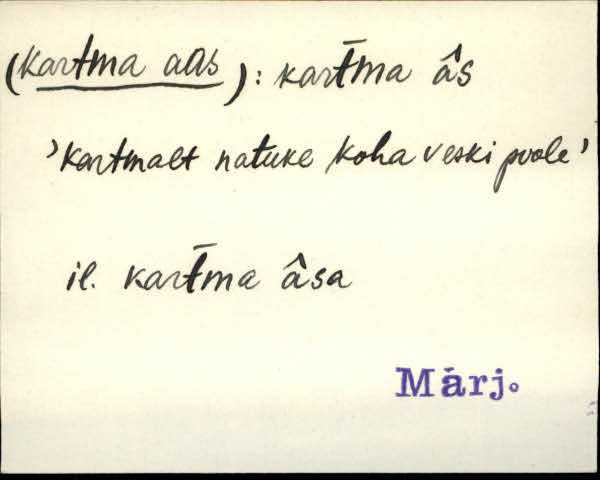 (kartma aas): kart̄ma âs
’kartmalt natuke koha veski poole’
il. kart̄ma âsa
Märj.